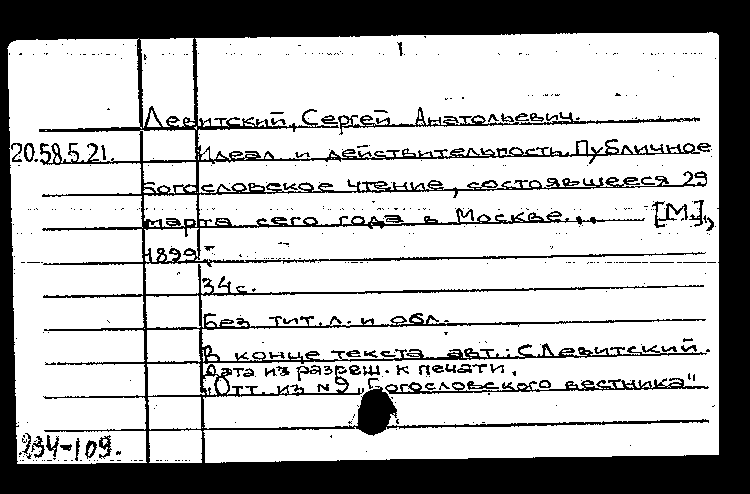 1
Левитский, Сергей Анатольевич.
20.58.5.21. Идеал и действительность. Публичное
богословское чтение, состоявшееся 29
марта сего года в Москве... [М.],
1899.
34 с.
Без тит. л. и обл.
В конце текста авт.: С. Левитский.
Дата из разреш. к печати.
Отт. из №9 „Богословского вестника"
234-109.